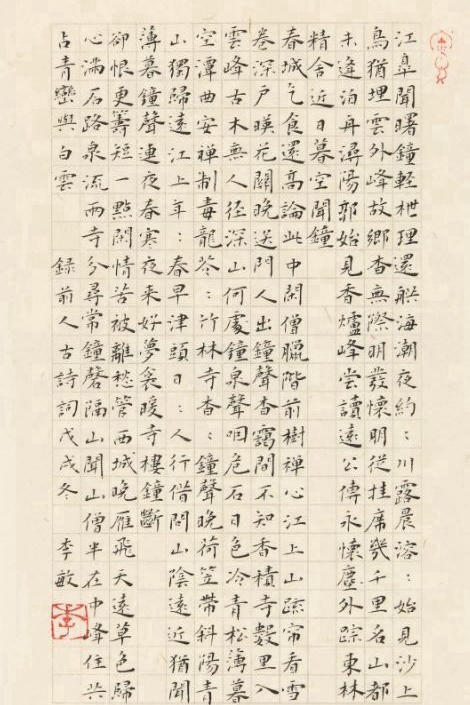 江皋聞曙鐘輕枻理還舼海潮夜約：川露晨溶：始見沙上
鳥猶埋雲外峰故鄉杳無際明發懷明從挂席幾千里名山都
未逢泊舟潯陽郭始見香爐峰嘗讀遠公傳永懷塵外踪東林
精舍近日暮空聞鐘
春城乞食還高論此中閑僧臘階前樹禪心江上山踈帘看雪
卷深戶暎花關晚送門人出鐘聲杳靄間不知香積寺數里入
雲峰古木無人径深山何處鐘泉聲咽危石日色冷青松薄暮
空潭曲安禪制毒龍苍：竹林寺杳：鐘聲晚荷笠帶斜陽青
山獨歸遠江上年：春早津頭日：人行借問山陰遠近猶聞
薄暮鐘聲連夜春寒夜來好夢衾暖寺樓鐘斷
卻恨更籌短一點閑情苦被離愁管西城晚雁飛天遠草色歸
心滿石路泉流兩寺分尋常鐘磬隔山聞山僧半在中峰住共
占青巒與白雲 錄前人古詩詞戊戌冬 李敏
李